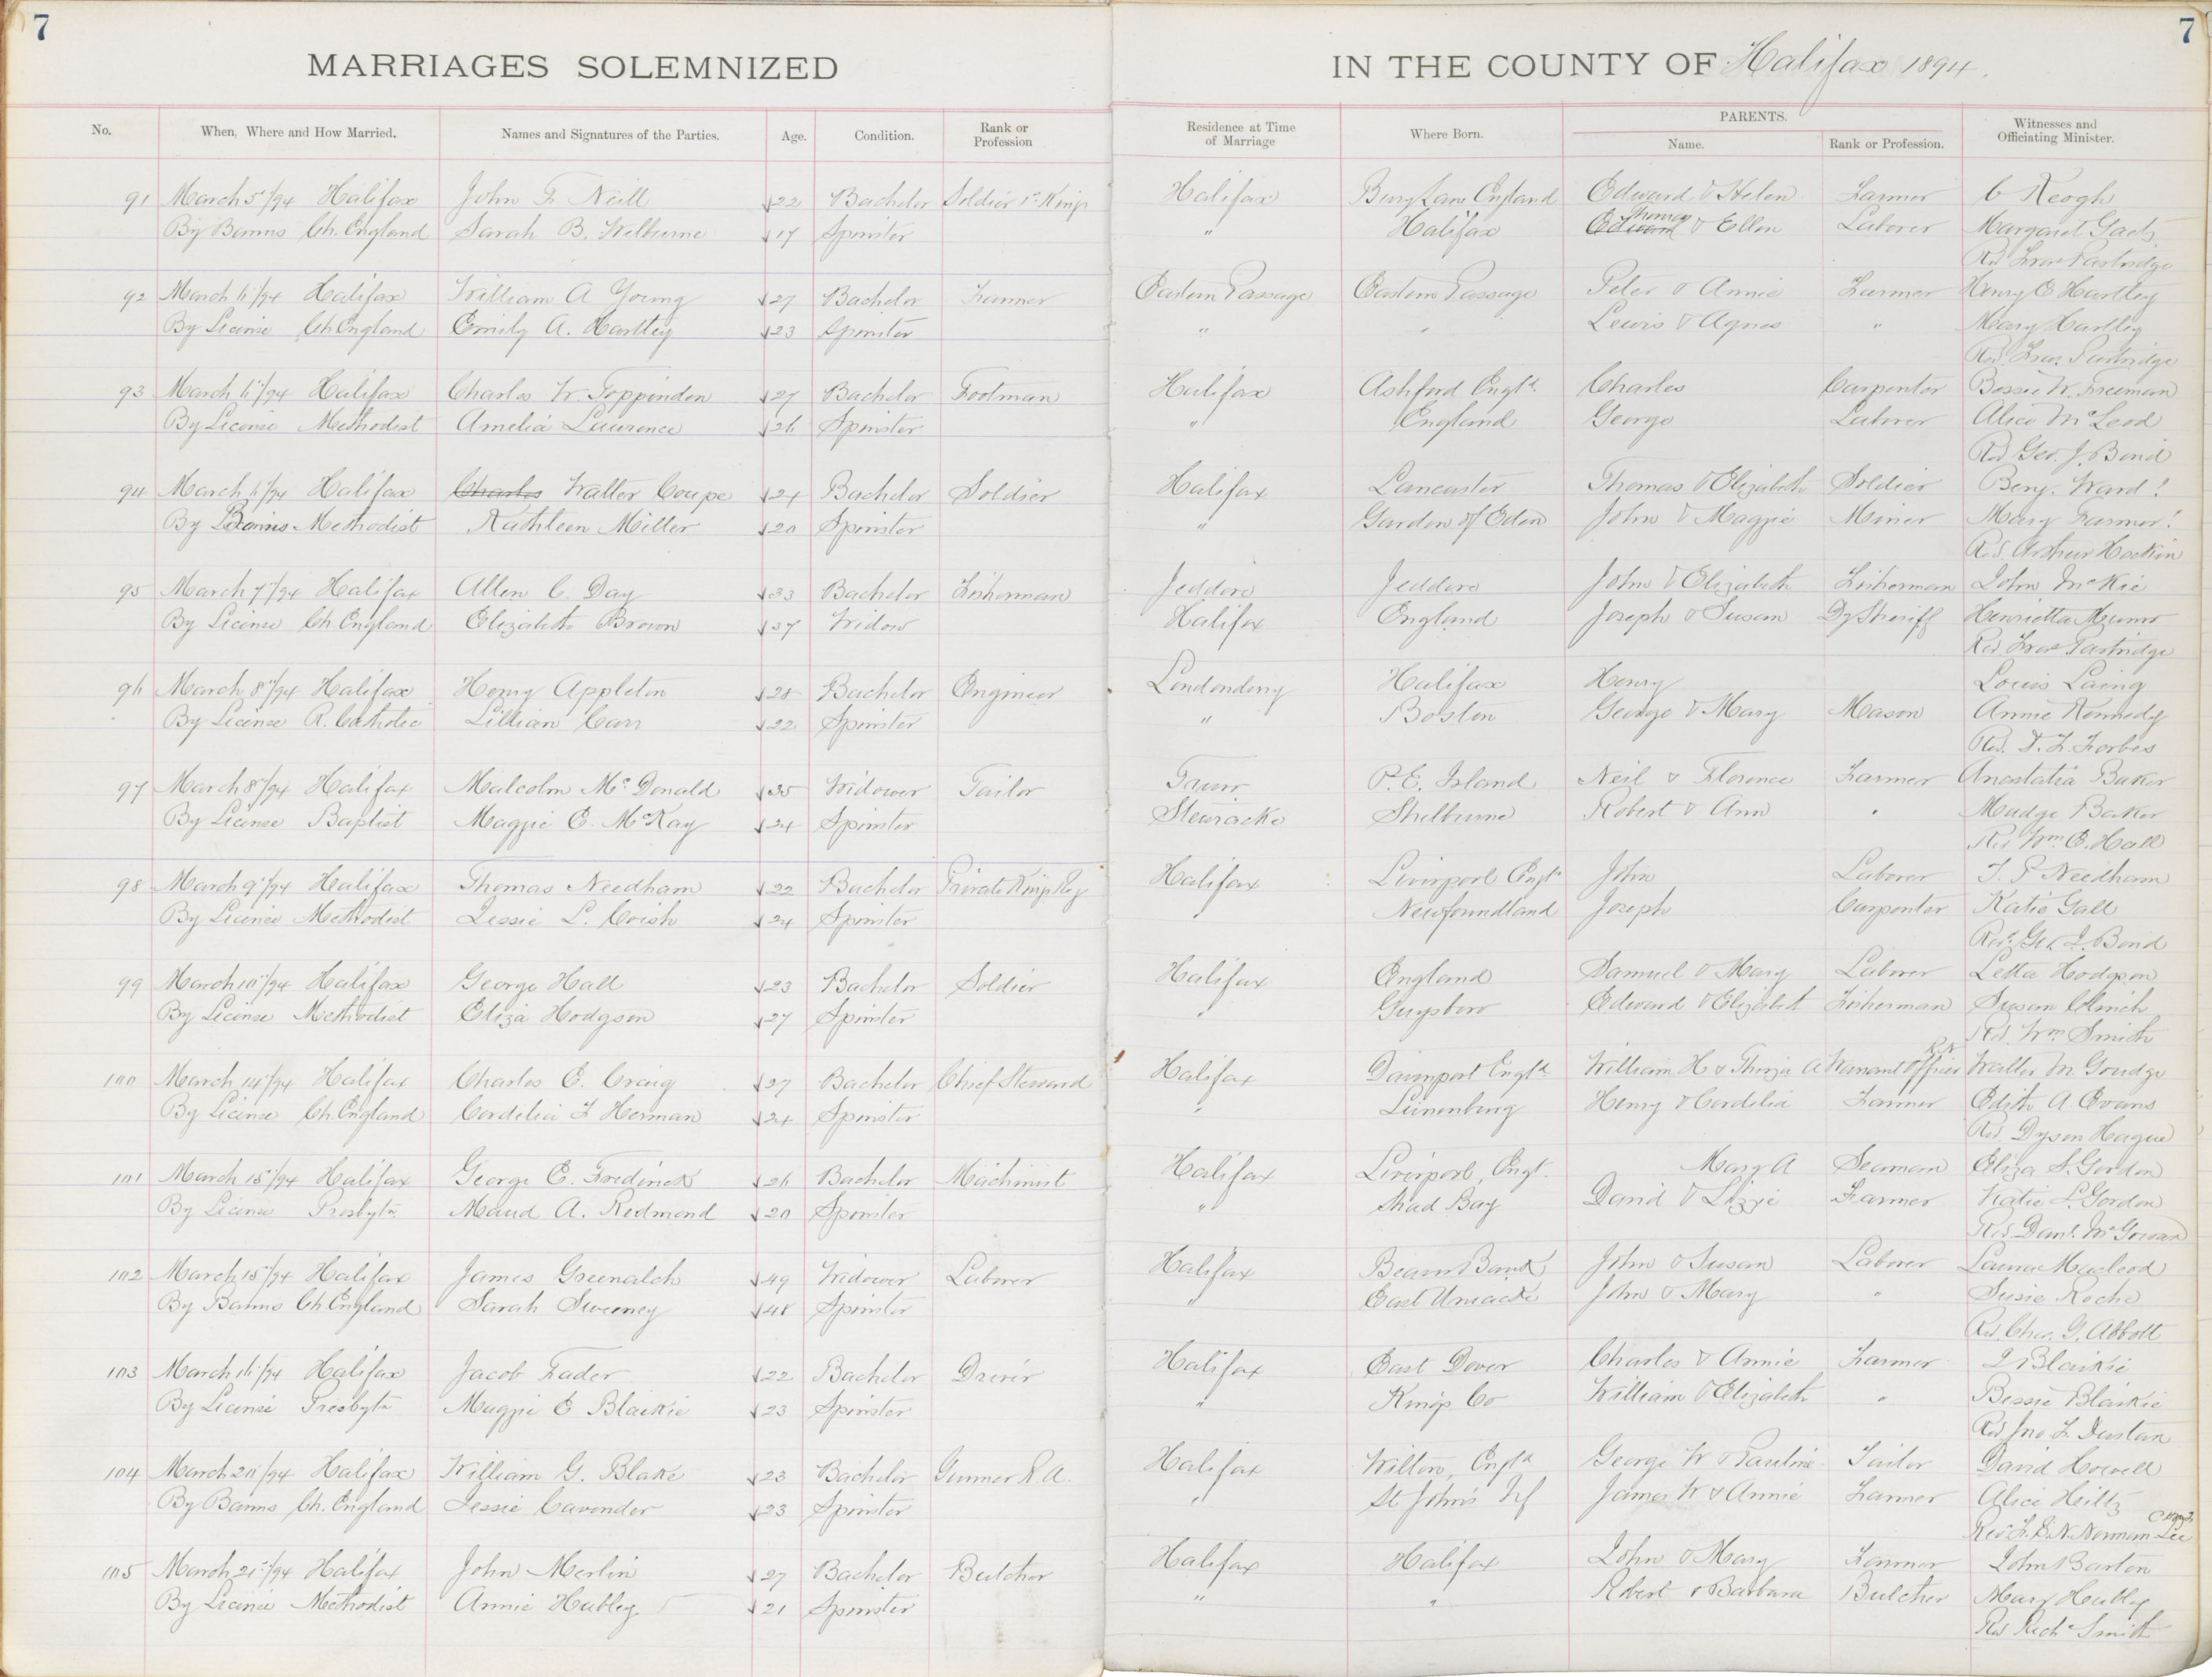 7
7
MARRIAGES SOLEMNIZED IN THE COUNTY OF Halifax 1894.
No. When, Where and How Married. Names and Signatures of the Parties. Age. Condition. Rank or Profession Residence at Time of Marriage Where Born. PARENTS. Name. Rank or Profession. Witnesses and Officiating Minister.
91 March 5"/94 Halifax John F Neill 22 Bachelor Soldier 1st Kings Halifax Bury Lane England Edward & Helen Farmer C Keogh
By Banns Ch. England Sarah B. Wilburne 17 Spinster " Halifax Edward Thomas & Ellen Laborer Margaret
Rev Fras Partridge
92 March 6"/94 Halifax William A Young 27 Bachelor Farmer Eastern Passage Eastern Passage Peter & Annie Farmer Henry E Hartley
By License Ch England Emily A. Hartley 23 Spinster " " Lewis & Agnes " Mary Hartley
Rev. Fras Partridge
93 March 6"/94 Halifax Charles W. Toppinden 27 Bachelor Footman Halifax Ashford Engld. Charles Carpenter Bessie W. Freeman
By License Methodist Amelia Laurence 26 Spinster " England George Laborer Alice McLeod
Rev Geo. J. Bond
94 March 6"/94 Halifax Charles Walter Coupe 24 Bachelor Soldier Halifax Lancaster Thomas & Elizabeth Soldier Benj. Ward!
By Banns Methodist Kathleen Miller 20 Spinster " Garden of Eden John & Maggie Miner Mary Farmer!
Rev. Arthur Hockin
95 March 7"/94 Halifax Allen C. Day 33 Bachelor Fisherman Jeddore Jeddore John & Elizabeth Fisherman John McKie
By License Ch. England Elizabeth Brown 37 Widow Halifax England Joseph & Susan Dy Sheriff Henrietta Munro
Rev Fras Partridge
96 March 8"/94 Halifax Henry Appleton 28 Bachelor Engineer Londonderry Halifax Henry Louis Laing
By License R. Catholic Lillian Carr 22 Spinster " Boston George & Mary Mason Annie Kennedy
Rev. F. Forbes
97 March 8"/94 Halifax Malcolm McDonald 35 Widower Tailor Truro P.E. Island Neil & Florence Farmer Anastatia Baker
By License Baptist Maggie E. McKay 24 Spinster Stewiacke Shelburne Robert & Ann " Madge Baker
Rev Wm E. Hall
98 March 9"/94 Halifax Thomas Needham 22 Bachelor Private Kings Reg Halifax Liverpool Engld John Laborer T. P Needham
By License Methodist Jessie L. Coish 24 Spinster " Newfoundland Joseph Carpenter Katie Gall
Rev. Geo. J. Bond
99 March 10"/94 Halifax George Hall 23 Bachelor Soldier Halifax England Samuel & Mary Laborer Letta Hodgson
By License Methodist Eliza Hodgson 27 Spinster " Guysboro Edward & Elizabeth Fisherman Susan Clinch
Rev. Wm Smith
100 March 14"/94 Halifax Charles E. Craig 27 Bachelor Chief Steward Halifax Davenport Engld. William H & Thirza A Warrant Officer R.N Walter M. Goudge
By License Ch. England Cordelia F Herman 24 Spinster " Lunenburg Henry & Cordelia Farmer Edith A Evans
Rev. Dyson Hague
101 March 15"/94 Halifax George E. Frederick 26 Bachelor Machinist Halifax Liverpool, Engt. Mary A Seaman Eliza S. Gordon
By License Presbytn Maud A. Redmond 20 Spinster " Shad Bay David & Lizzie Farmer Katie L. Gordon
Rev. Danl. McGowan
102 March 15"/94 Halifax James Greenalch 49 Widower Laborer Halifax Beaver Bank John & Susan Laborer Laura Macleod
By Banns Ch England Sarah Sweeney 48 Spinster " East Uniacke John & Mary " Susie Roche
Rev. Chas. G. Abbott
103 March 16"/94 Halifax Jacob Fader 22 Bachelor Driver Halifax East Dover Charles & Annie Farmer J Blaikie
By License Presbytn Maggie E Blaikie 23 Spinster " Kings Co William & Elizabeth " Bessie Blaikie
Rev Jno F. Dustan
104 March 20"/94 Halifax William G. Blake 23 Bachelor Gunner R.A. Halifax Wilton, Engld George W & Pauline Tailor David Howell
By Banns Ch. England Jessie Cavender 23 Spinster " St John's Nf James W & Annie Farmer Alice Heiltz
Rev F. E. N. Norman-Lee
105 March 21st/94 Halifax John Merlin 27 Bachelor Butcher Halifax Halifax John & Mary Farmer John Barton
By License Methodist Annie Hubley 21 Spinster " " Robert & Barbara Butcher Mary Hubley
Rev Richd Smith